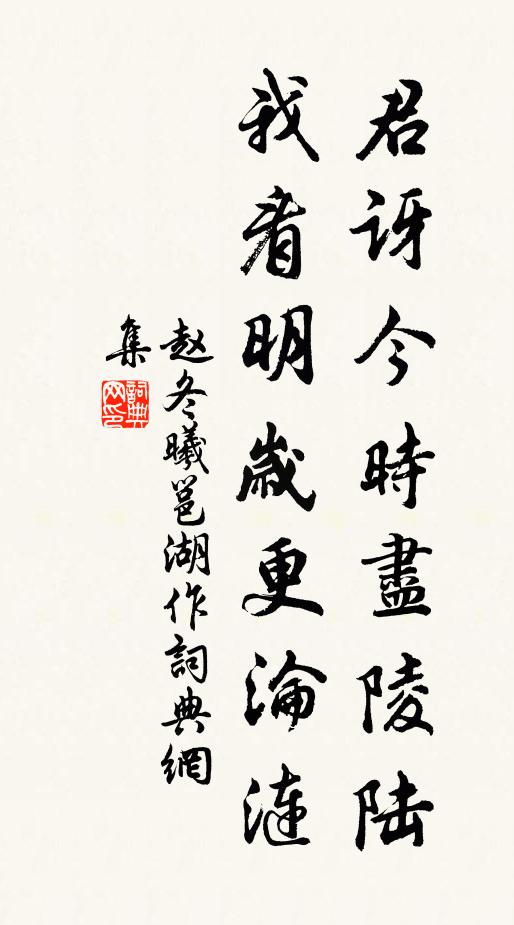 君讶今時盡陵陆
我看明歳更淪漣
赵冬曦邕湖作詞典網
集
詞典
网印